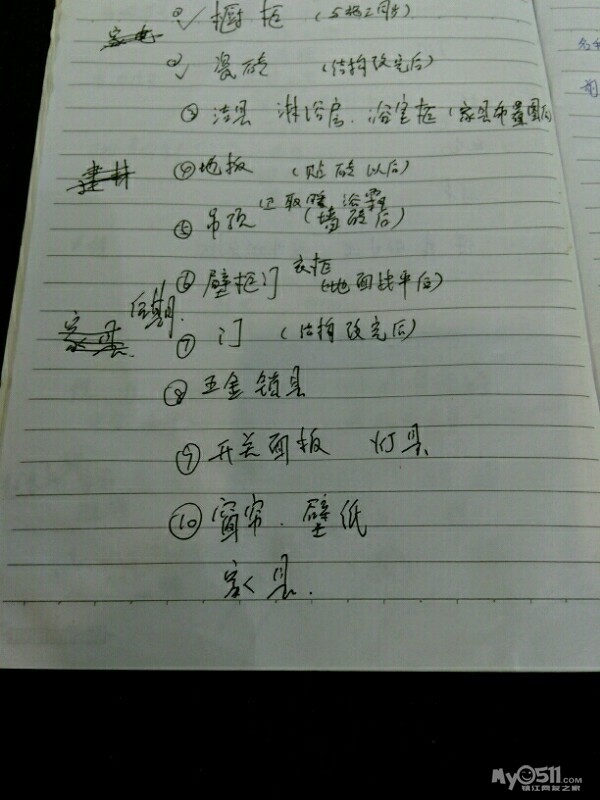 ① ✓ 橱柜 (与拆工同步)
② ✓ 瓷砖 (结构改完后)
③ 洁具 淋浴房、浴室柜 (家具布置图后)
④ 地板 (贴砖以后)
取暖 浴霸
⑤ 吊顶 (墙砖后)
衣柜
⑥ 壁柜门 (地面找平后)
后期.
⑦ 门 (结构改完后)
⑧ 五金锁具
⑨ 开关面板 灯具
⑩ 窗帘、壁纸
家具.
My0511.com
镇江网友之家